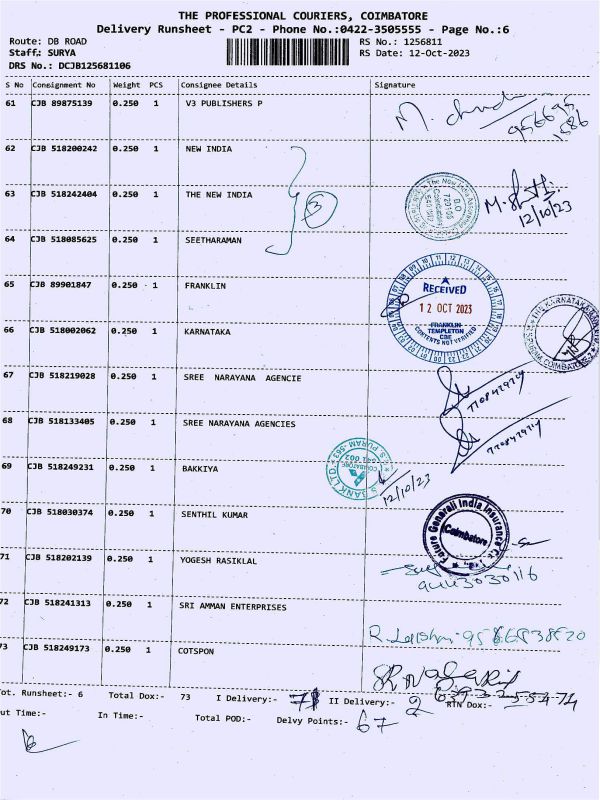 THE PROFESSIONAL COURIERS, COIMBATORE
Delivery Runsheet - PC2 - Phone No.:0422-3505555 - Page No.:6
Route: DB ROAD RS No.: 1256811
Staff.: SURYA RS Date: 12-Oct-2023
DRS No.: DCJB125681106
S No Consignment No Weight PCS Consignee Details Signature
61 CJB 89875139 0.250 1 V3 PUBLISHERS P
62 CJB 518200242 0.250 1 NEW INDIA
63 CJB 518242404 0.250 1 THE NEW INDIA
3
12/10/23
64 CJB 518085625 0.250 1 SEETHARAMAN
65 CJB 89901847 0.250 1 FRANKLIN
RECEIVED
12 OCT 2023
FRANKLIN
TEMPLETON
CBE
CONTENTS NOT VERIFIED
66 CJB 518002062 0.250 1 KARNATAKA
67 CJB 518219028 0.250 1 SREE NARAYANA AGENCIE
68 CJB 518133405 0.250 1 SREE NARAYANA AGENCIES
69 CJB 518249231 0.250 1 BAKKIYA
12/10/23
70 CJB 518030374 0.250 1 SENTHIL KUMAR
Future Generali India Insurance
Coimbatore
71 CJB 518202139 0.250 1 YOGESH RASIKLAL
72 CJB 518241313 0.250 1 SRI AMMAN ENTERPRISES
73 CJB 518249173 0.250 1 COTSPON
Tot. Runsheet:- 6 Total Dox:- 73 I Delivery:- 71 II Delivery:- 2 RTN Dox:-
ut Time:- In Time:- Total POD:- Delvy Points:- 67